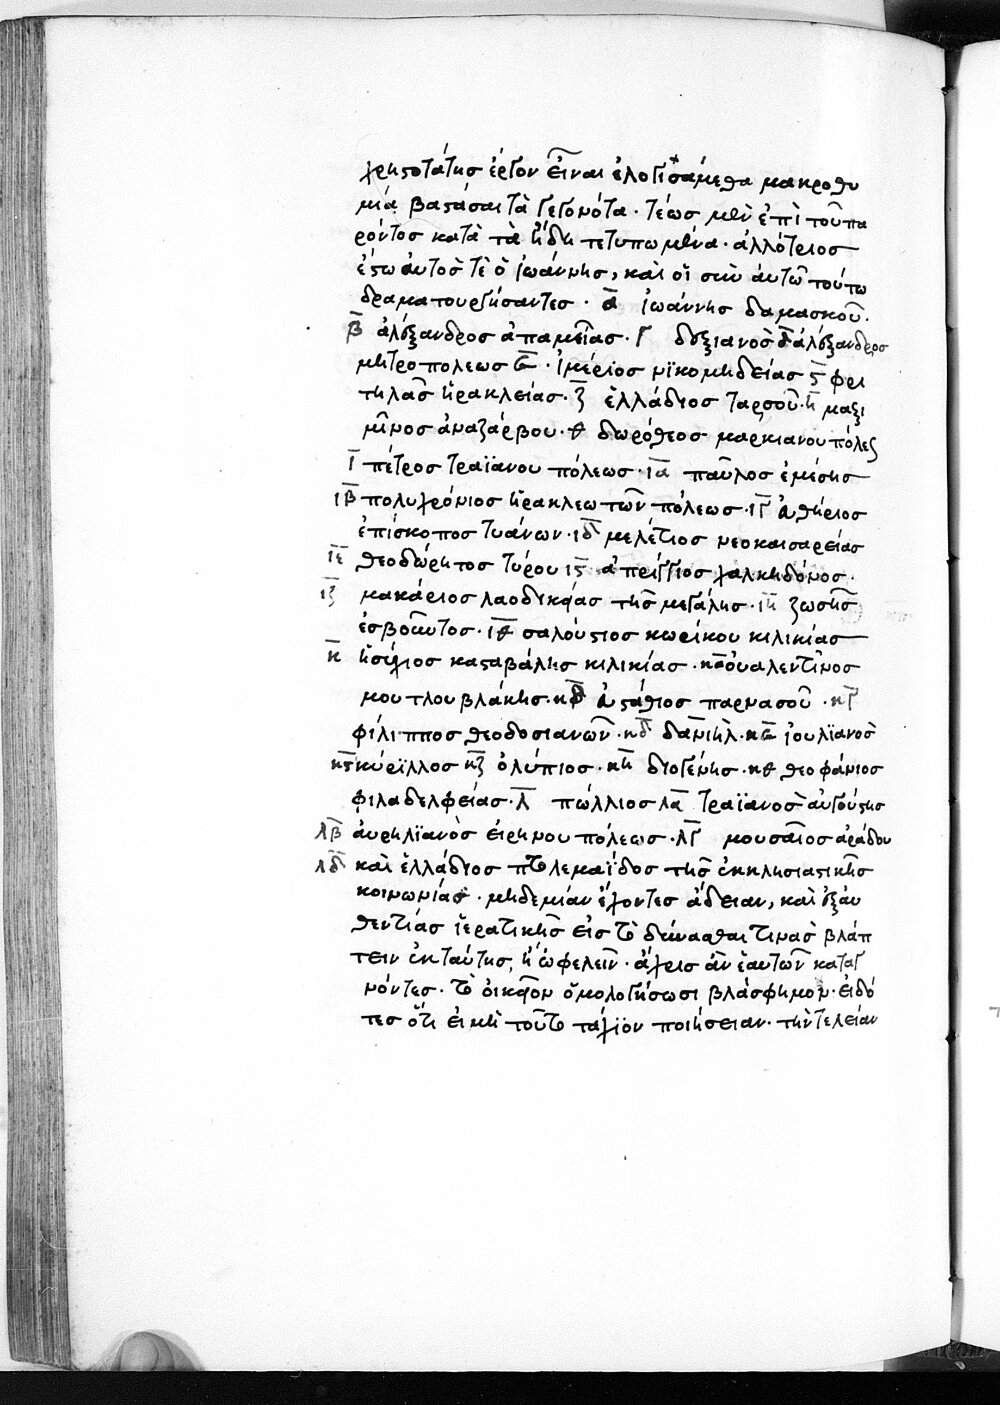 χρηστοτάτης ἔργον εἶναι ἐλογισάμεθα μακροθυ
μία βαστάσαι τὰ γεγονότα · τέως μὲν ἐπὶ τοῦ πα
ρόντος κατὰ τὰ ἤδη τετυπωμένα · ἀλλότριος
ἔστω αὐτός τὲ ὁ ἰωάννης, καὶ οἱ σὺν αὐτῶ τούτω
δραματουργήσαντες · α̅ ἰωάννης δαμασκοῦ.
β̅ ἀλέξανδρος ἀπαμείας · γ̅ δεξιανὸς δ̅ ἀλέξανδρος
μητροπολεως ε̅ · ἱμέριος νϊκομηδείας ϛ̅ φρι
τηλᾶς ἡρακλείας · ζ̅ ἑλλάδιος ταρσοῦ · η̅ μαξι
μῖνος ἀναζάρβου · θ̅ δωρόθεος μαρκιανουπόλεως
ι̅ πέτρος τραϊανουπόλεως · ια̅ παῦλος ἐμέσης
ιβ̅ πολυχρόνιος ἡρακλεωτῶν πόλεως · ιγ̅ εὐθήριος
ἐπίσκοπος τυάνων · ιδ̅ μελέτιος νεοκαισαρείας
ιε̅ θεοδώρητος τύρου ιϛ̅ ἀπρίγγιος χαλκηδόνος ·
ιζ̅ μακάριος λαοδικείας τῆς μεγάλης · ιη̅ ζωσῆς
ἐσβοῦντος · ιθ̅ σαλούστιος κωρίκου κιλικίας
κ̅ ἡσύχιος κασταβάλης κιλικίας · κα̅ οὐαλεντῖνος
μουτλουβλάκης · κβ̅ εὐστάθιος παρνασοῦ · κγ̅
φίλιππος θεοδοσιανῶν · κδ̅ δανιὴλ · κε̅ ἰουλϊανὸς
κϛ̅ κύριλλος κζ̅ ὀλύπιος · κη̅ διογένης · κθ̅ θεοφάνιος
φιλαδελφείας · λ̅ πώλλιος λα̅ τραϊανὸς αὐγούστης
λβ̅ αὐρηλϊανὸς εἰρηνουπόλεως · λγ̅ μουσαῖος ἀράδου
λδ̅ καὶ ἑλλάδιος πτολεμαΐδος τῆς ἐκκλησιαστικῆς
κοινωνίας · μηδεμίαν ἔχοντες ἄδειαν, καὶ ἐξ αὐ
θεντίας ἱερατικῆς εἰς τὸ δύνασθαι τινὰς βλάπ
τειν ἐκ ταύτης, ἢ ὠφελεῖν · ἄχρις ἂν ἑαυτῶν καταγ
νόντες · τὸ οἰκεῖον ὁμολογήσωσι βλάσφημον · εἰδό
τες ὅτι εἰ μὴ τοῦτο τάχϊον ποιήσειαν · τὴν τελείαν